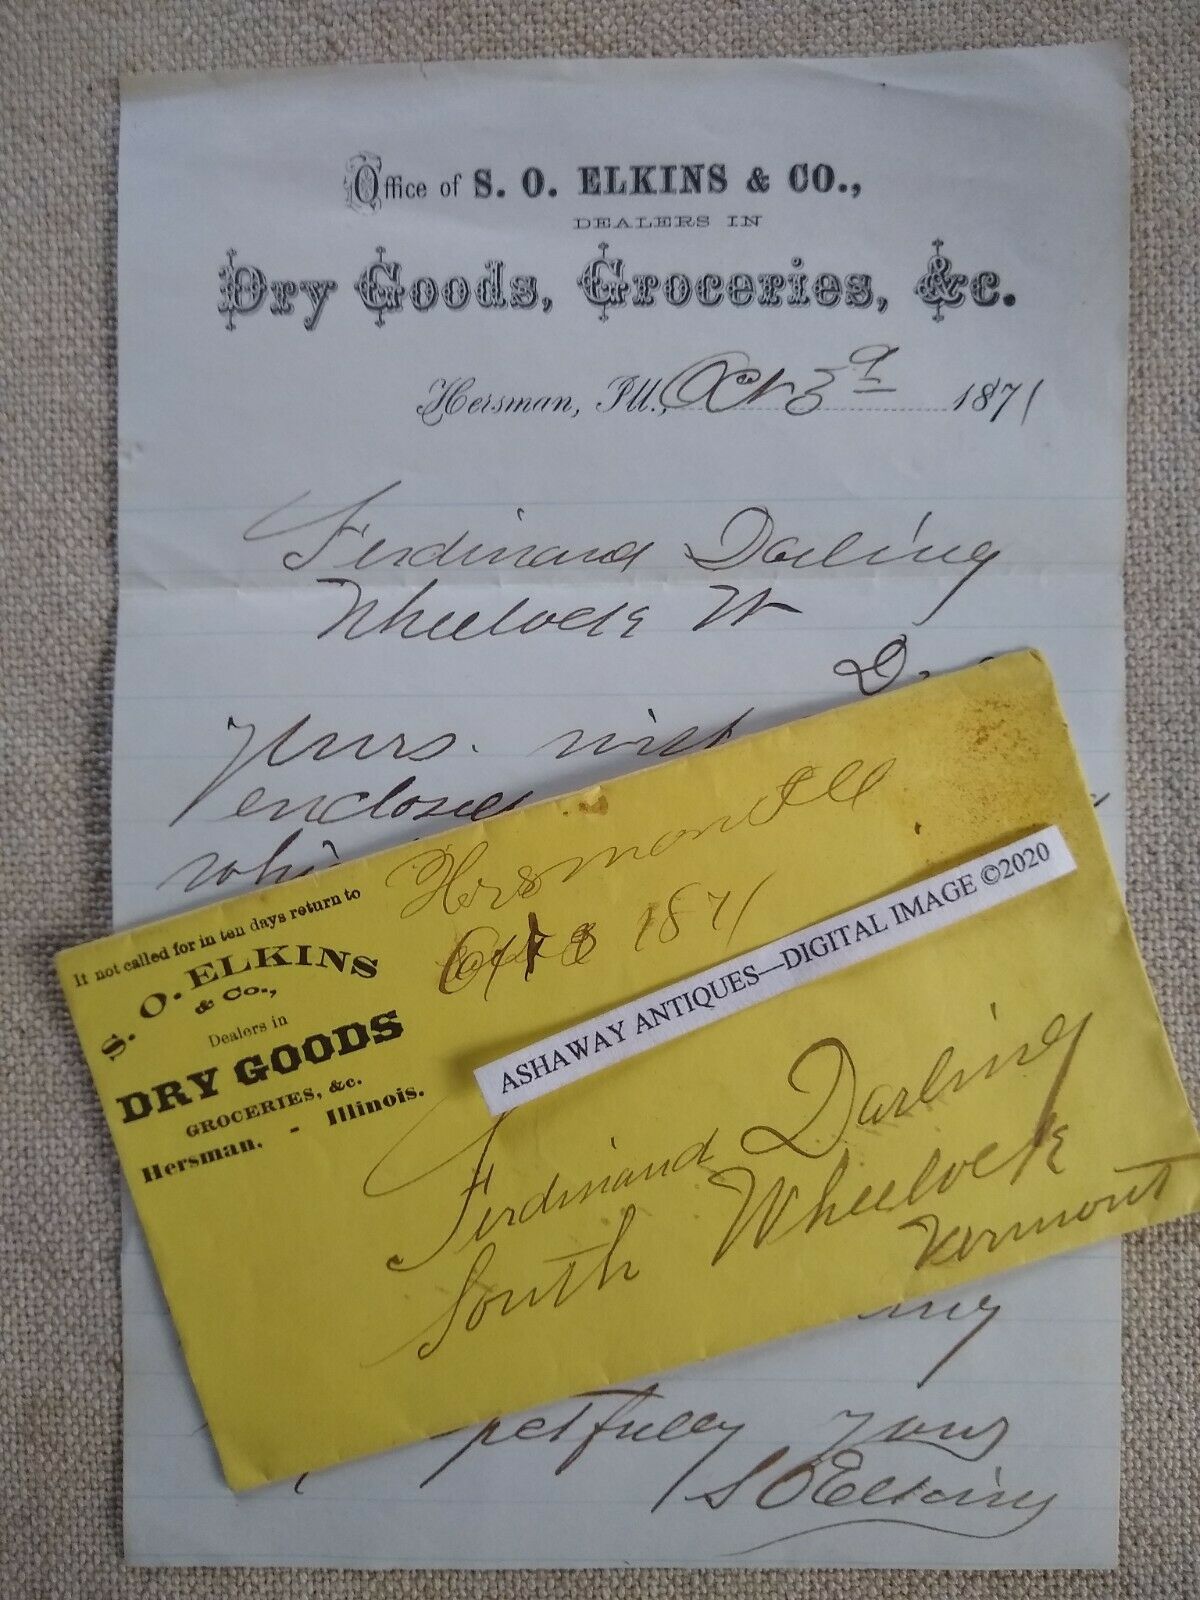 Office of S. O. ELKINS & CO.,
DEALERS IN
Dry Goods, Groceries, &c.
Hersman, Ill., Oct 3d 1871
Ferdinand Darling
Wheelock Vt
D.
Yours
enclosed
If not called for in ten days return to
S. O. ELKINS
& Co.,
Dealers in
DRY GOODS
GROCERIES, &c.
Hersman. - Illinois.
Hersman Ill
Oct 3 1871
ASHAWAY ANTIQUES—DIGITAL IMAGE ©2020
Ferdinand Darling
South Wheelock
Vermont
pectfully yours
S O Elkins